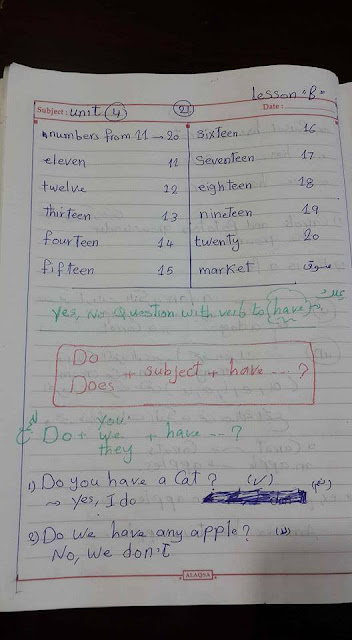 Lesson "B"
Subject: unit 4 21 Date:
numbers from 11 → 20
eleven 11
twelve 12
thirteen 13
fourteen 14
fifteen 15
sixteen 16
Seventeen 17
eighteen 18
nineteen 19
twenty 20
market سوق
Yes, No Question with verb to (have)
Do
Does + subject + have --- ?
Do + you
we
they + have -- ?
1) Do you have a Cat? (✓)
→ Yes, I do
2) Do we have any apple?
No, we don't
ALAQSA